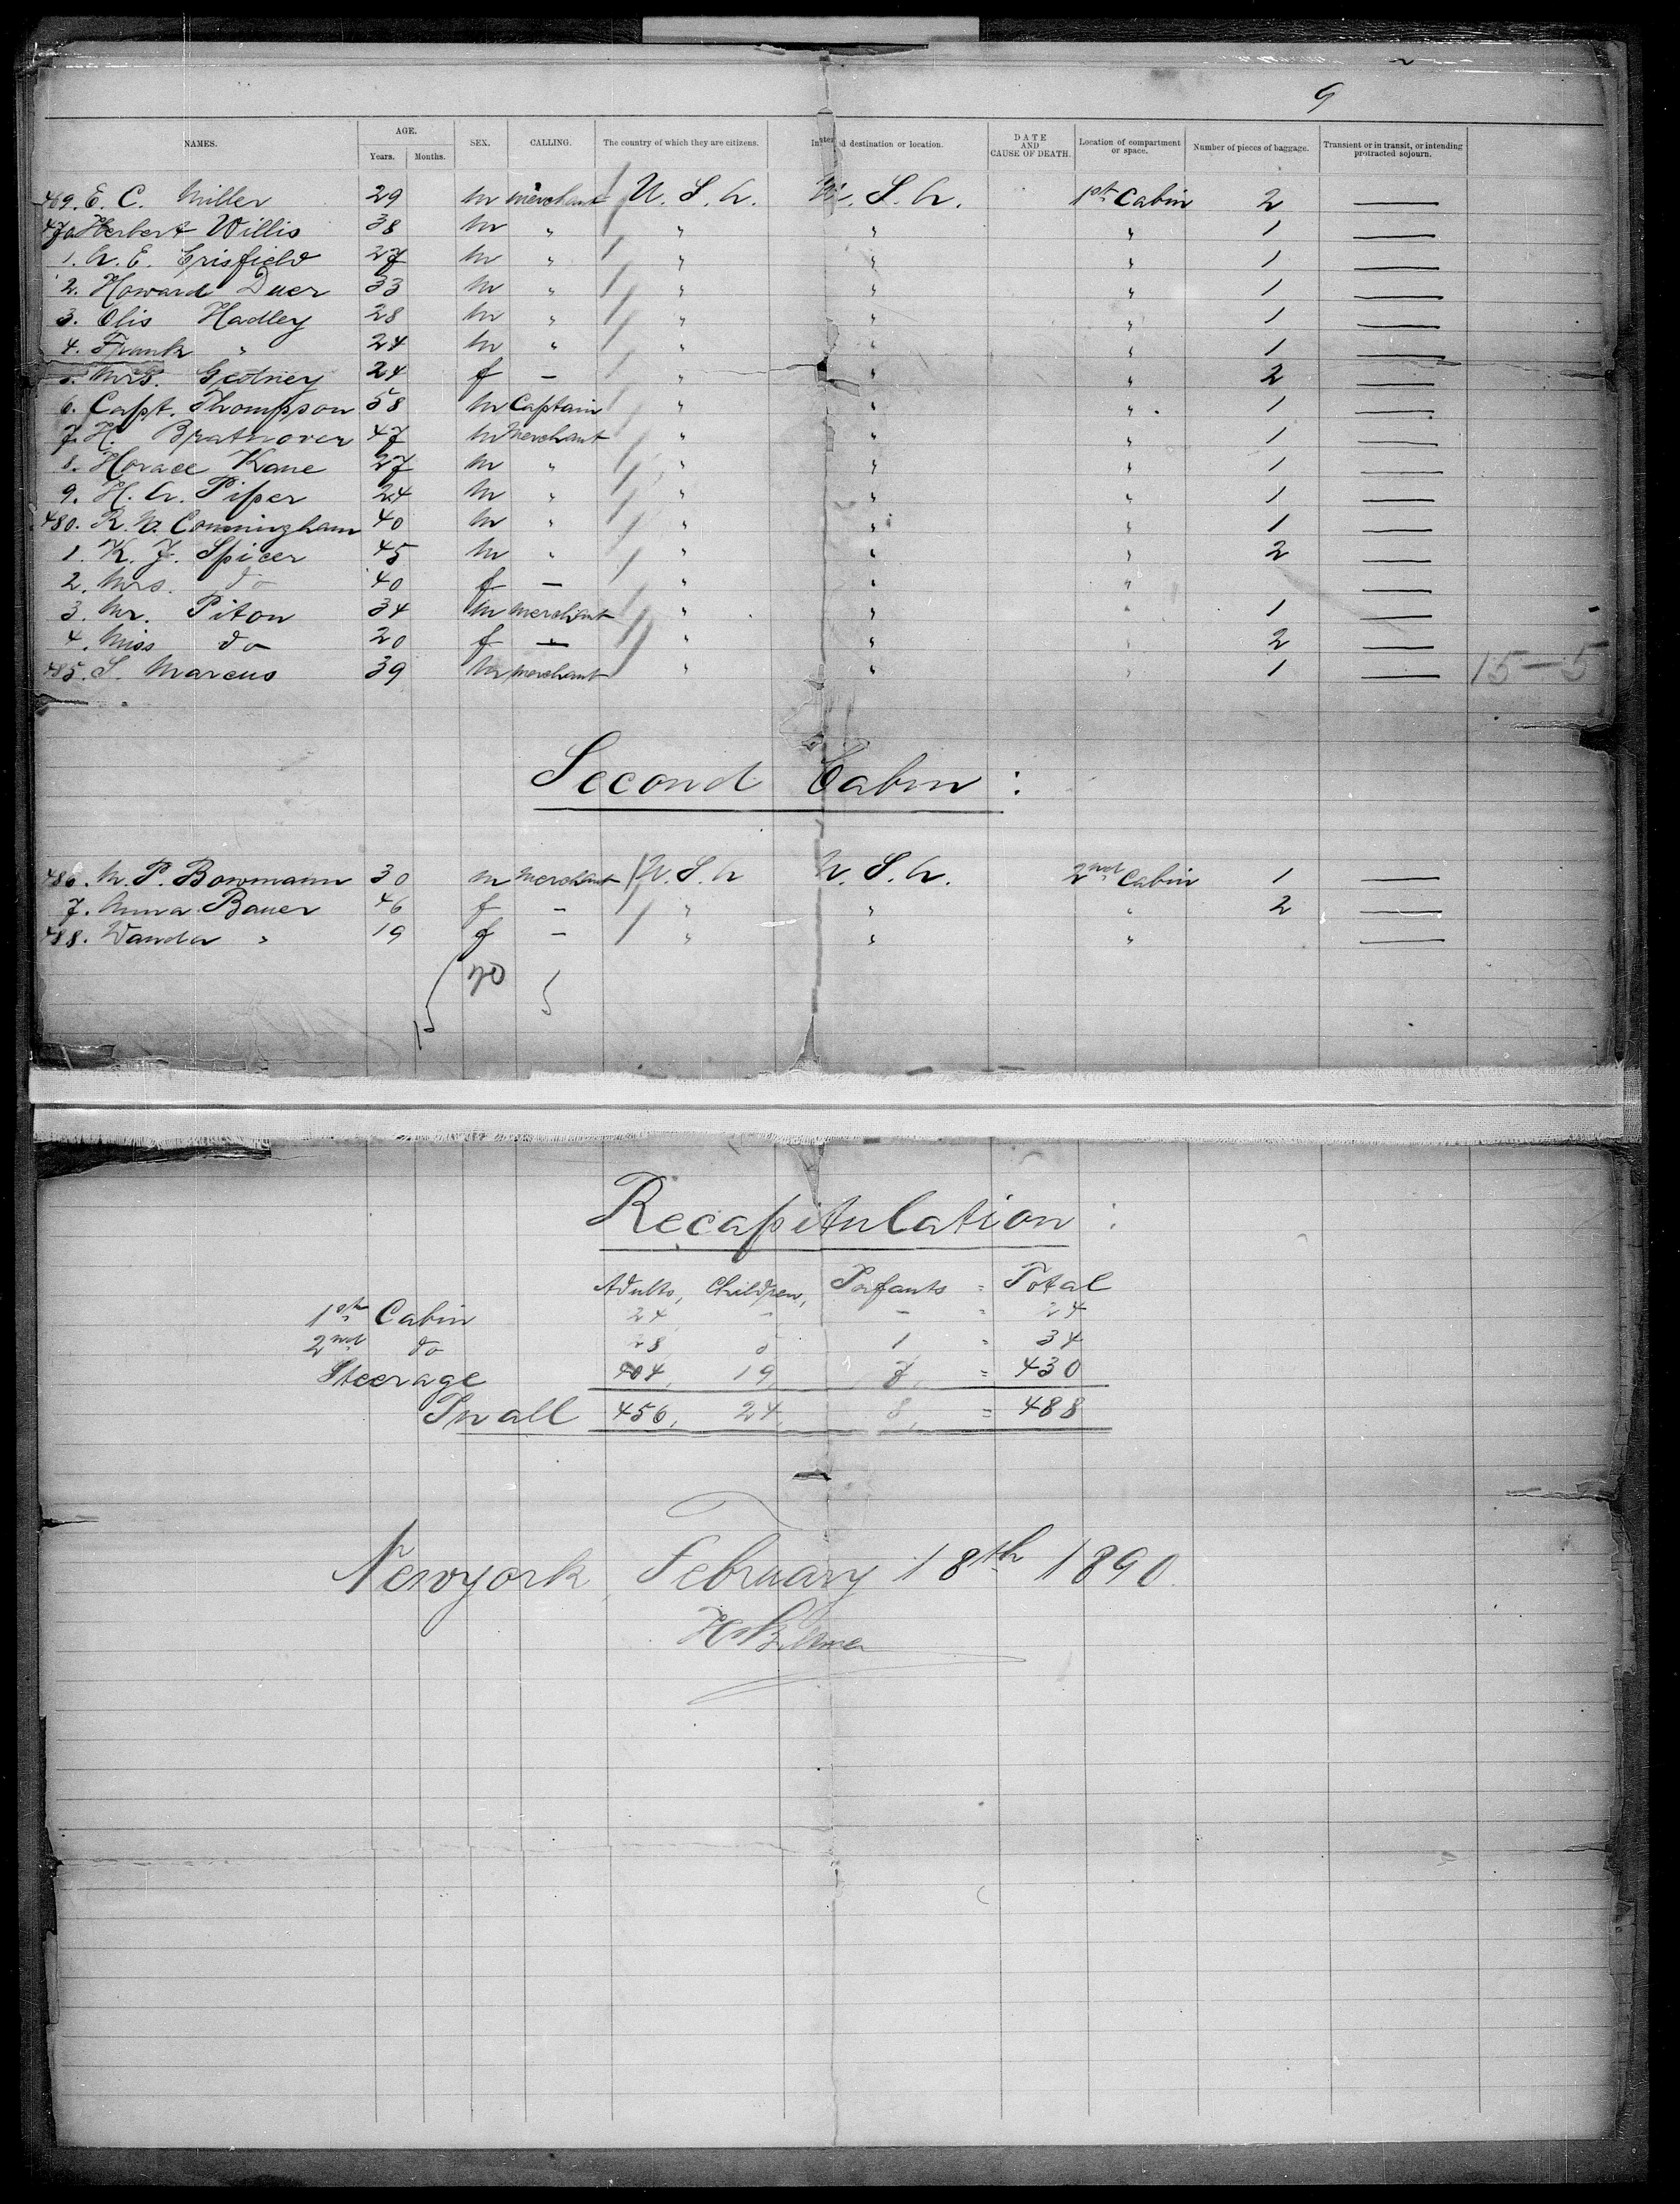 9
NAMES. AGE. Years. Months. SEX. CALLING. The country of which they are citizens. Intended destination or location. DATE AND CAUSE OF DEATH. Location of compartment or space. Number of pieces of baggage. Transient or in transit, or intending protracted sojourn.
469. E. C. Miller 29 m merchant U. S. A. U. S. A. 1st Cabin 2 —
470 Herbert Willis 38 m " " " " 1 —
1. A. E. Crisfield 27 m " " " " 1 —
2. Howard Duer 33 m " " " " 1 —
3. Olis Hadley 28 m " " " " 1 —
4. Frank " 24 m " " " " 1 —
5. Mrs. Gedney 24 f — " " " 2 —
6. Capt. Thompson 58 m Captain " " " 1 —
7. H. Bratnover 47 m Merchant " " " 1 —
8. Horace Kane 27 m " " " " 1 —
9. H. A. Pifer 24 m " " " " 1 —
480. R. W. Conningham 40 m " " " " 1 —
1. K. J. Spicer 45 m " " " " 2 —
2. Mrs. do 40 f — " " " —
3. Mr. Piton 34 m merchant " " " 1 —
4. Miss do 20 f — " " " 2 —
485. S. Marcus 39 m merchant " " " 1 — 15-5
Second Cabin :
486. M. P. Bowmann 30 m Merchant U. S. A U. S. A. 2nd Cabin 1 —
7. Anna Bauer 46 f — " " " 2 —
488. Wanda " 19 f — " " " —
70
Recapitulation :
Adults, Children, Infants = Total
1st Cabin 24 - - = 24
2nd do 28 5 1 = 34
Steerage 404, 19, 7, = 430
In all 456, 24, 8, = 488
Newyork, February 18th 1890.